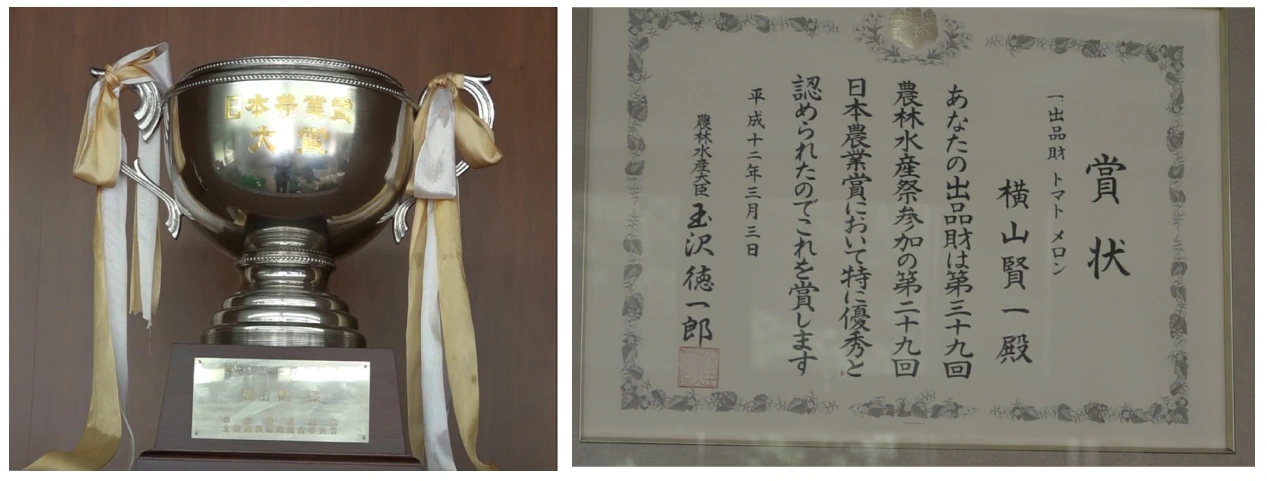 日本農業賞
大賞
賞状
横山賢一殿
一出品財 トマト メロン
あなたの出品財は第三十九回
農林水産祭参加の第二十九回
日本農業賞において特に優秀と
認められたのでこれを賞します
平成十二年三月三日
農林水産大臣 玉沢徳一郎